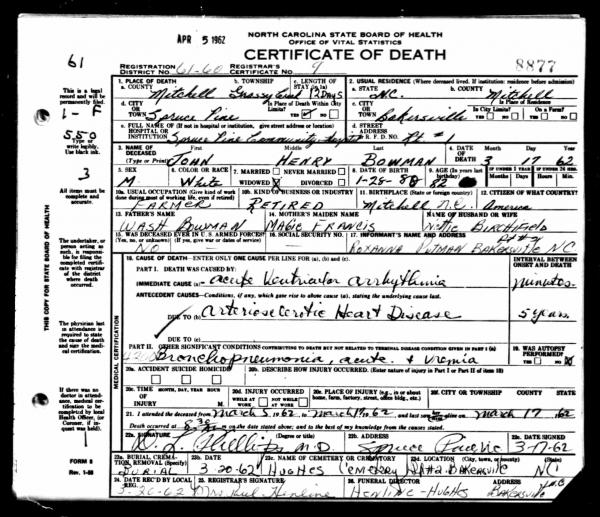 APR 5 1962
NORTH CAROLINA STATE BOARD OF HEALTH
OFFICE OF VITAL STATISTICS
CERTIFICATE OF DEATH
61
REGISTRATION DISTRICT NO. 61-60 REGISTRAR'S CERTIFICATE NO. 9 8877
1. PLACE OF DEATH a. COUNTY Mitchell b. TOWNSHIP Grassy Creek c. LENGTH OF STAY (in 1a) 12 Days
2. USUAL RESIDENCE (Where deceased lived. If institution: residence before admission) a. STATE N.C. b. COUNTY Mitchell
d. CITY OR TOWN Spruce Pine Is Place of Death Within City Limits? YES NO
c. CITY OR TOWN Bakersville Is Place of Residence In City Limits? On a Farm?
e. FULL NAME OF (If not in hospital or institution, give street address or location) HOSPITAL OR INSTITUTION Spruce Pine Community
d. STREET ADDRESS OR R. F. D. NO. Rt # 1
3. NAME OF DECEASED (Type or Print) First JOHN Middle HENRY Last BOWMAN 4. DATE OF DEATH Month 3 Day 17 Year 62
5. SEX M 6. COLOR OR RACE White 7. MARRIED NEVER MARRIED WIDOWED DIVORCED 8. DATE OF BIRTH 1-25-80 9. AGE (In years last birthday) 82
10a. USUAL OCCUPATION (Give kind of work done during most of working life, even if retired) FARMER 10b. KIND OF BUSINESS OR INDUSTRY RETIRED 11. BIRTHPLACE (State or foreign country) Mitchell N.C. 12. CITIZEN OF WHAT COUNTRY? America
13. FATHER'S NAME WASH BOWMAN 14. MOTHER'S MAIDEN NAME MAGIE FRANCIS NAME OF HUSBAND OR WIFE BIRCHFIELD
15. WAS DECEASED EVER IN U.S. ARMED FORCES? (Yes, no, or unknown) (If yes, give war or dates of service) NO 16. SOCIAL SECURITY NO. 17. INFORMANT'S NAME AND ADDRESS ROXANNA PUTMAN BAKERSVILLE N.C.
18. CAUSE OF DEATH—ENTER ONLY ONE CAUSE PER LINE FOR (a), (b), and (c). INTERVAL BETWEEN ONSET AND DEATH
PART I. DEATH WAS CAUSED BY:
IMMEDIATE CAUSE (a) acute Ventricular arrhythmia minutes.
ANTECEDENT CAUSES—Conditions, if any, which gave rise to above cause (a), stating the underlying cause last.
DUE TO (b) Arteriosclerotic Heart Disease 5 years.
DUE TO (c)
PART II. OTHER SIGNIFICANT CONDITIONS CONTRIBUTING TO DEATH BUT NOT RELATED TO TERMINAL DISEASE CONDITION GIVEN IN PART I (a)
Bronchopneumonia, acute. + Uremia 19. WAS AUTOPSY PERFORMED? YES NO
20a. ACCIDENT SUICIDE HOMICIDE 20b. DESCRIBE HOW INJURY OCCURRED. (Enter nature of injury in Part I or Part II of item 18)
20c. TIME OF INJURY MONTH, DAY, YEAR HOUR M. 20d. INJURY OCCURRED WHILE AT WORK NOT WHILE AT WORK 20e. PLACE OF INJURY (e.g., in or about home, farm, factory, street, office bldg., etc.) 20f. CITY OR TOWNSHIP COUNTY STATE
21. I attended the deceased from March 5, 1962, to March 17, 62, and last saw alive on March 17, 62
Death occurred at m. on the date stated above; and to the best of my knowledge from the causes stated.
22a. SIGNATURE (Degree or title) M.D 22b. ADDRESS Spruce Pine N.C. 22c. DATE SIGNED 3-17-62
23a. BURIAL, CREMATION, REMOVAL (Specify) BURIAL 23b. DATE 3-20-62 23c. NAME OF CEMETERY OR CREMATORY HUGHES CEMETERY 23d. LOCATION (City, town, or county) (State) Rt #2 BAKERSVILLE NC
24. DATE REC'D BY LOCAL REG. 3-20-62 25. REGISTRAR'S SIGNATURE 26. FUNERAL DIRECTOR HENLINE-HUGHES ADDRESS BAKERSVILLE N.C.
THIS COPY FOR STATE BOARD OF HEALTH
MEDICAL CERTIFICATION
This is a legal record and will be permanently filed.
1-F
550
Type or write legibly. Use black ink.
3
All items must be complete and accurate.
The undertaker, or person acting as such, is responsible for filing the completed certificate with registrar of the district where death occurred.
The physician last in attendance is required to state the cause of death and sign the medical certification.
If there was no doctor in attendance, medical certification to be completed by local Health Officer, (or Coroner, if inquest was held)
FORM 8